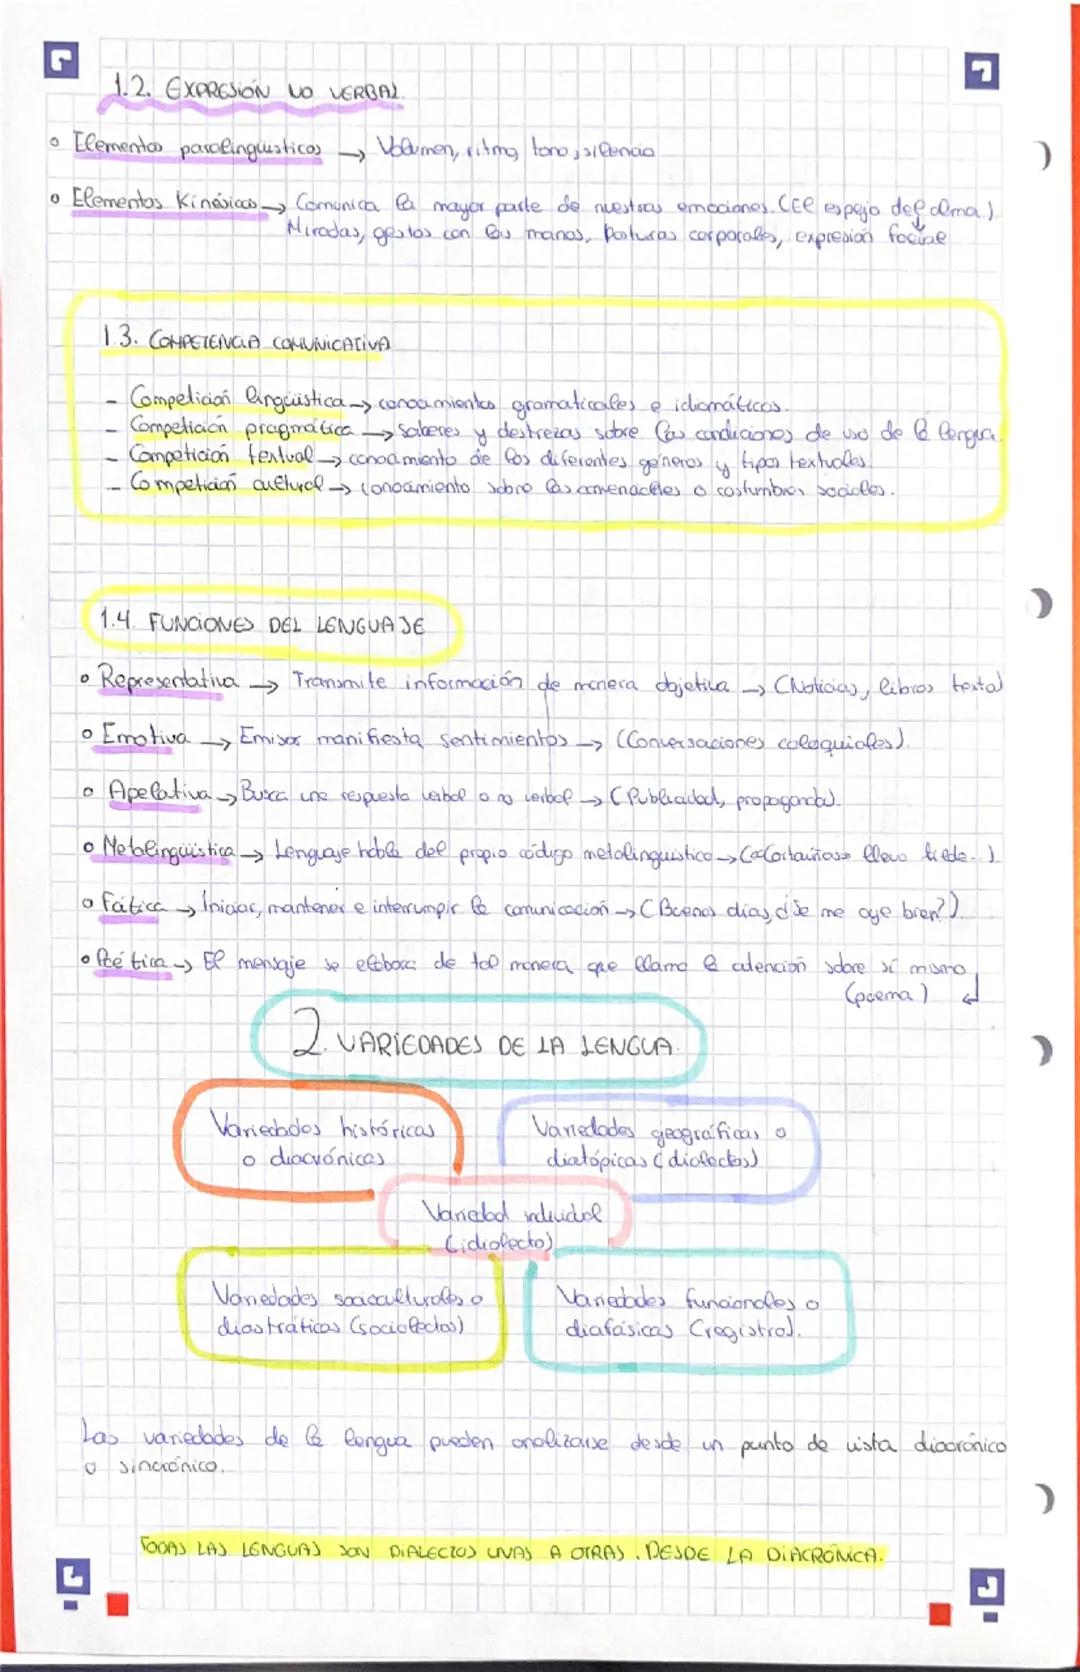 1.2. EXPRESIÓN NO VERBAL
Elementos paralingüísticos → Volumen, ritmo, tono, silencio
Elementos Kinésicos → Comunica la mayor parte de nuestras emociones. (El espejo del alma.)
Miradas, gestos con las manos, posturas corporales, expresión facial
1.3. COMPETENCIA COMUNICATIVA
- Competición lingüística → conocimientos gramaticales e idiomáticos.
- Competición pragmática → saberes y destrezas sobre las condiciones de uso de la lengua.
- Competición textual → conocimiento de los diferentes géneros y tipos textuales.
- Competición cultural → conocimiento sobre las convenciones o costumbres sociales.
1.4. FUNCIONES DEL LENGUAJE
Representativa → Transmite información de manera objetiva → (Noticias, libros texto)
Emotiva → Emisor manifiesta sentimientos → (Conversaciones coloquiales).
Apelativa → Busca una respuesta verbal o no verbal → (Publicidad, propaganda).
Metalingüística → Lenguaje habla del propio código metalinguistico → ( lleva tilde.)
Fática → Iniciar, mantener e interrumpir la comunicación → (Buenos días, ¿se me oye bien?)
Poética → El mensaje se elabora de tal manera que llama la atención sobre sí mismo
(poema) ↲
2. VARIEDADES DE LA LENGUA.
Variedades históricas
o diacrónicas
Variedades geográficas o
diatópicas (dialectos)
Variedad individual
(idiolecto)
Variedades socioculturales o
diastráticas (sociolectos)
Variedades funcionales o
diafásicas (registro).
Las variedades de la lengua pueden analizarse desde un punto de vista diacrónico
o sincrónico.
TODAS LAS LENGUAS SON DIALECTOS UNAS A OTRAS. DESDE LA DIACRÓNICA.